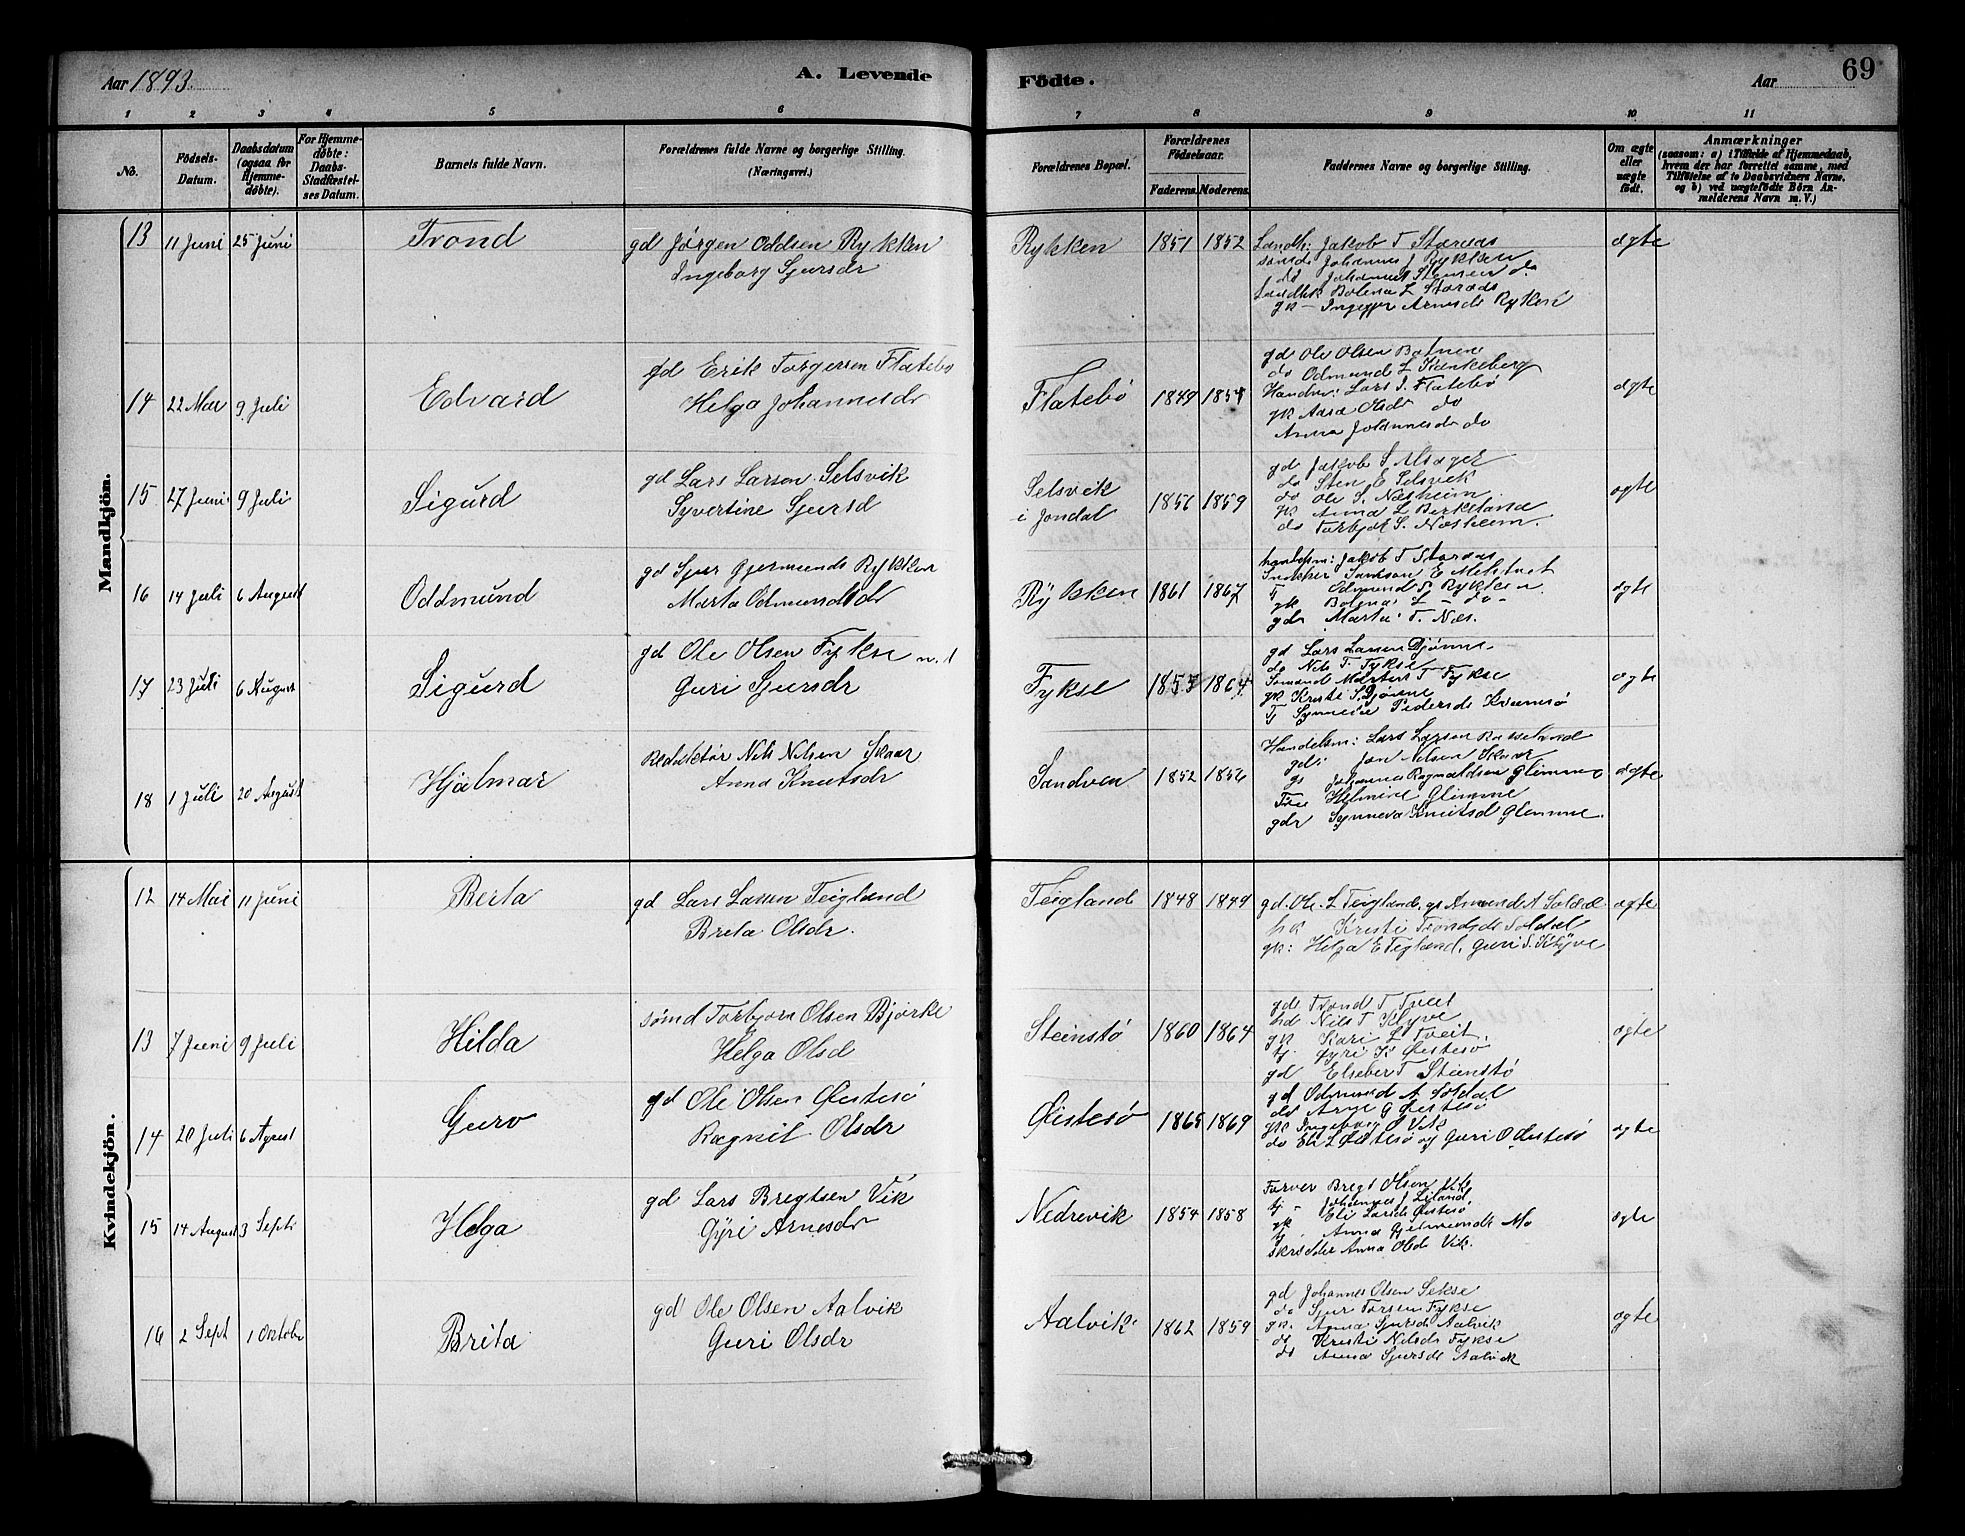 Aar 1893.
A. Levende
Födte.
Aar
69
1 2 3 4 5 6 7 8 9 10 11
No.
Födsels-Datum.
Daabsdatum (ogsaa for Hjemmedöbte).
For Hjemmedöbte: Daabs-Stadfæstelses Datum.
Barnets fulde Navn.
Forældrenes fulde Navne og borgerlige Stilling. (Næringsvei.)
Forældrenes Bopæl.
Forældrenes Födselsaar.
Faderens. Moderens.
Faddernes Navne og borgerlige Stilling.
Om ægte eller uægte födt.
Anmærkninger
(saasom: a) i Tilfælde af Hjemmedaab, hvem der har forrettet samme, med Tilföielse af to Daabsvidners Navne, og b) ved uægtefödte Börn Anmelderens Navn m. V.)
Mandkjön.
13 11 Juni 25 Juni Trond gd Jørgen Oddsen Rykken
Ingeborg Sjursdr
Rykken 1851 1852
Jakob T Staraas
Johannes J Rykken
do Johannes Steinsen do
Bolena L Staraas
gk - Arnesdr Rykken
ægte
14 22 Mai 9 Juli Edvard gd Erik Torgersen Flatebø
Helga Johannesdr
Flatebø 1849 1854
gd Ole Olsen
do Odmund L
Lars J. Flatebø
gk Olsdr do
Anna Johannesdr do
ægte
15 27 Juni 9 Juli Sigurd gd Lars Larsen Selsvik
Syvertine Sjursd
Selsvik i Jondal 1856 1859
gd Jakob S Alsager
do Sten E Selsvik
do Ole S. Næsheim
gk Anna L Birkeland
do Torbjør S. Næsheim.
ægte
16 14 Juli 6 August Oddmund gd Sjur Gjermunds Rykken
Marta Odmundsdr
Rykken 1861 1867
Jakob T Staraas
Samson E
Tj Odmund Rykken
gk Bolena L - do -
gdr Marta T. Næs.
ægte
17 23 Juli 6 August Sigurd gd Ole Olsen Fykse n. 1
Guri Sjursdr
Fykse 1857 1864
gd Lars Larsen Djønne
do Nils T. Fykse
T Fykse
gk Kristi S. Djønne
Tj Pedersdr Kvamsø
ægte
18 1 Juli 20 August Hjalmar Redaktør Nils Nilsen Skaar
Anna Knutsdr
Sandven 1852 1856
Handelsm: Lars Larsen
gd: Jon Nilsen Skaar
gs Johannes Ragnaldsen Glimme
Helmine Glimme
gdr Synneva Knutsd Glimme.
ægte
Kvindekjön.
12 14 Mai 11 Juni Berta gd Lars Larsen Teigland
Brita Olsdr.
Teigland 1848 1849
gd. Ole L Teigland, gs Amund A Soldal
hk Kristi Trondsdr Soldal
gk: Helga E Teigland, Guri S. Klyve
ægte
13 7 Juni 9 Juli Hilda sømd Torbjørn Olsen Bjørke
Helga Olsd
Steinstø 1860 1864
gd Trond T Tveit
hd Nils T Klyve
gk Kari L Tveit.
tj Gyri K Østesø
gd Elseber T Steinstø
ægte
14 20 Juli 6 August Guro gd Ole Olsen Øistesø
Ragnil Olsdr
Øistesø 1865 1869
gd Odmund A Soldal
do Arne G Østesø
gk Ingeborg O Vik
do Eli L Østesø og Guri O Østesø
ægte
15 14 August 3 Sept: Helga gd Lars Bregtsen Vik
Gyri Arnesdr
Nedrevik 1854 1858
Farver Bregt Olsen Vik
tj - Johannes J Liland,
gk Eli Larsdr Østesø
tj. Anna Gjermunds Mo
Anna Olsdr Vik.
ægte
16 2 Sept 1 Oktober Brita gd Ole Olsen Aalvik
Guri Olsdr
Aalvik 1862 1859
gd Johannes Olsen Sekse
do Sjur Torsen Fykse
gk. Anna Sjursdr Aalvik
do Kristi Nilsdr Fykse
do Anna Sjursdr Aalvik
ægte